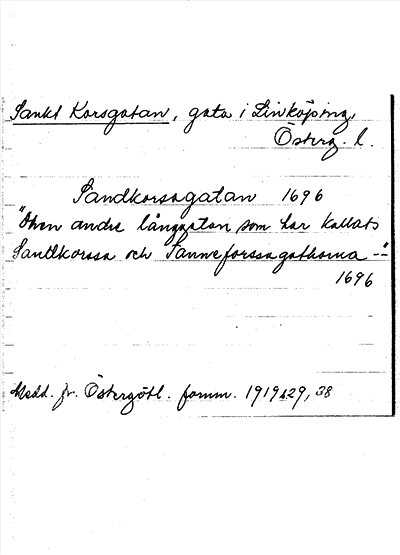 Sankt Korsgatan, gata i Linköping,
Österg. l.
Sandkorsagatan 1696
"Then andre långgatan, som har kallats
Sandkorssa och Sanneforssagathorna --"
1696
Medd. fr. Östergötl. fornm. 1919 s 29, 38